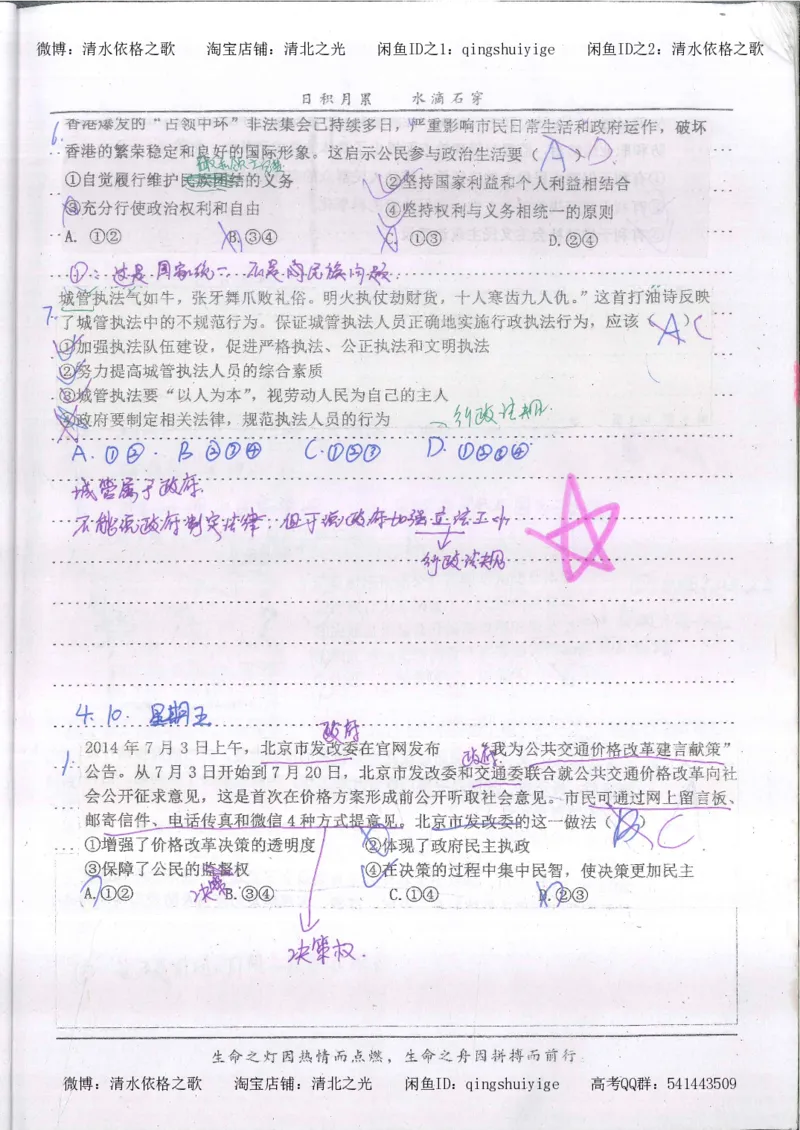 微博：清水依格之歌 淘宝店铺：清北之光 闲鱼ID之1：qingshuiyige 闲鱼ID之2：清水依格之歌
日积月累 水滴石穿
6. 香港爆发的“占领中环”非法集会已持续多日，严重影响市民日常生活和政府运作，破坏
香港的繁荣稳定和良好的国际形象。这启示公民参与政治生活要（A）D.
①自觉履行维护民族团结的义务 ②坚持国家利益和个人利益相结合
③充分行使政治权利和自由 ④坚持权利与义务相统一的原则
A. ①② B.③④ C. ①③ D.②④
①：这是国家统一，不是民族问题.
城管执法气如牛，张牙舞爪败礼俗。明火执仗劫财货，十人寒齿九人仇。”这首打油诗反映
7. 了城管执法中的不规范行为。保证城管执法人员正确地实施行政执法行为，应该（A）C
①加强执法队伍建设，促进严格执法、公正执法和文明执法
②努力提高城管执法人员的综合素质
③城管执法要“以人为本”，视劳动人民为自己的主人
④政府要制定相关法律，规范执法人员的行为 行政法规.
A. ①②. B ②③④ C.①②③ D. ①②③④
城管属于政府.
不能说政府制定法律；但可说政府加强立法工作
行政法规
4. 10. 星期五
政府
1. 2014 年 7 月 3 日上午，北京市发改委在官网发布 “我为公共交通价格改革建言献策”
政府.
公告。从 7 月 3 日开始到 7 月 20 日，北京市发改委和交通委联合就公共交通价格改革向社
会公开征求意见，这是首次在价格方案形成前公开听取社会意见。市民可通过网上留言板、
邮寄信件、电话传真和微信 4 种方式提意见。北京市发改委的这一做法（B）C
①增强了价格改革决策的透明度 ②体现了政府民主执政
③保障了公民的监督权 ④在决策的过程中集中民智，使决策更加民主
决策
A.①② B.③④ C.①④ D.②③
决策权.
生命之灯因热情而点燃，生命之舟因拼搏而前行
微博：清水依格之歌 淘宝店铺：清北之光 闲鱼ID：qingshuiyige 高考QQ群：541443509